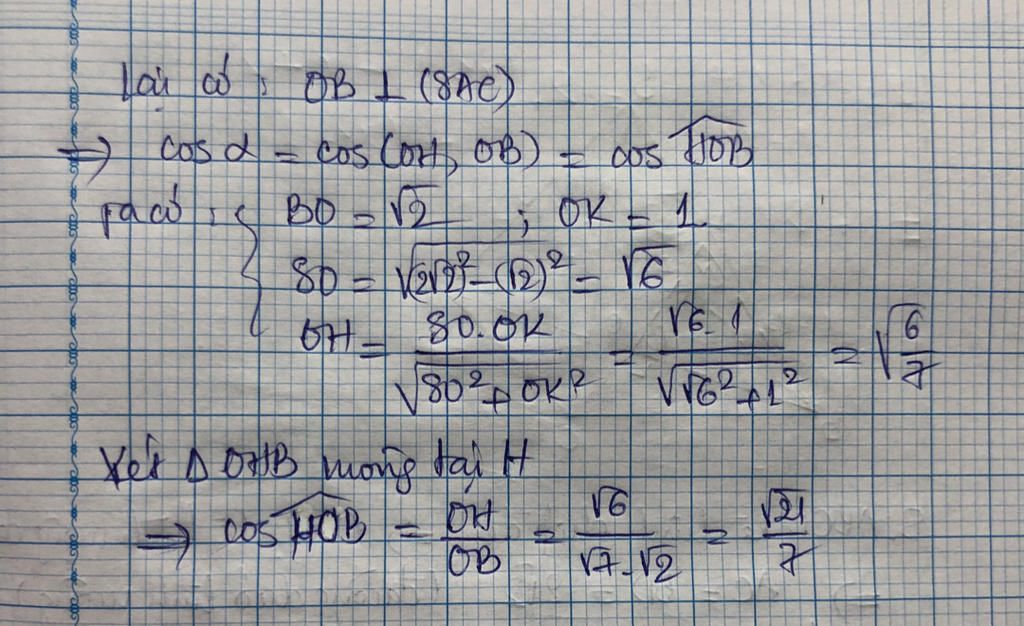 Lại có : OB ⊥ (SAC)
⇒ cos α = cos(OH, OB) = cos HOB
Ta có : { BO = √2 ; OK = 1
SO = √((2√2)² - (√2)²) = √6
OH = SO.OK / √(SO² + OK²) = √6.1 / √(√6² + 1²) = √(6/7)
Xét Δ OHB vuông tại H
⇒ cos HOB = OH/OB = √6 / (√7.√2) = √21/7